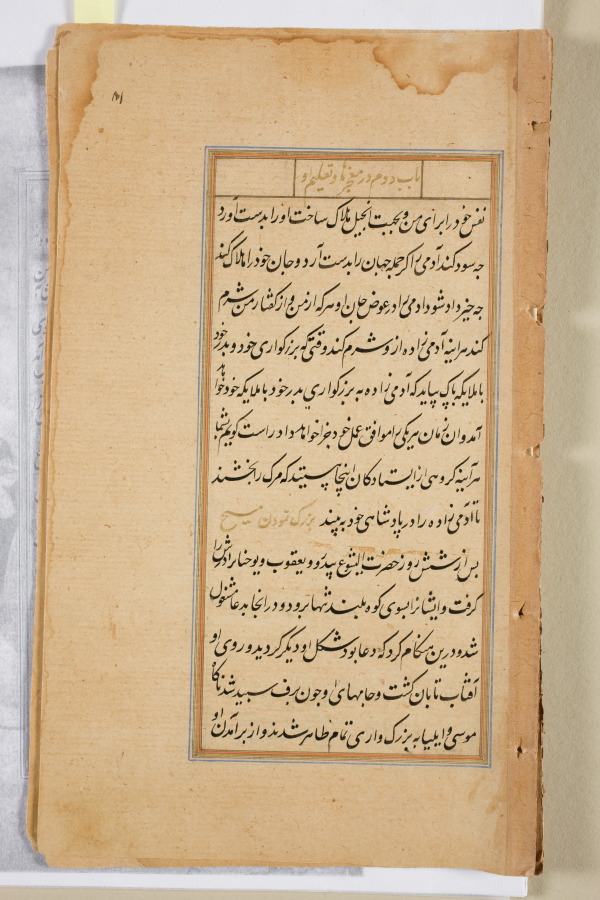 باب دوم در معجزها و تعلیم او
نفس خود را برای من و بجهت انجیل هلاک ساخت او را بدست آورد
چه سود کند آدمی را اگر جمله جهان را بدست آرد و جان خود را هلاک کند
چه چیز داد شود آدمی را در عوض جان او هر که از من و از گفتار من شرم
کند هر آینه آدمی زاده از و شرم کند وقتی که بزرگواری خود و پدر خود
با ملایکه پاک بیاید که آدمی زاده به بزرگواری پدر خود با ملایکه خود خواهد
آمد و آن زمان هر یکی را موافق عمل خود جزا خواهد داد راست گویم بشما
هر آینه گروهی از ایستادگان اینجا هستید که مرگ را نچشند
تا آدمی زاده را در پادشاهی خود به بینند بزرگ نمودن مسیح
پس از شش روز حضرت ایشوع پیدرو و یعقوب و یوحنا برادرش را
گرفت و ایشانرا بسوی کوه بلند تنها برد و در آنجا بدعا مشغول
شد و درین هنگام کرد که دعا بود شکل او دیگر گردید و روی او
آفتاب تابان گشت و جامهای او چون برف سپید شد ناگاه
موسی و ایلیا به بزرگ واری تمام ظاهر شدند و از برآمدن او